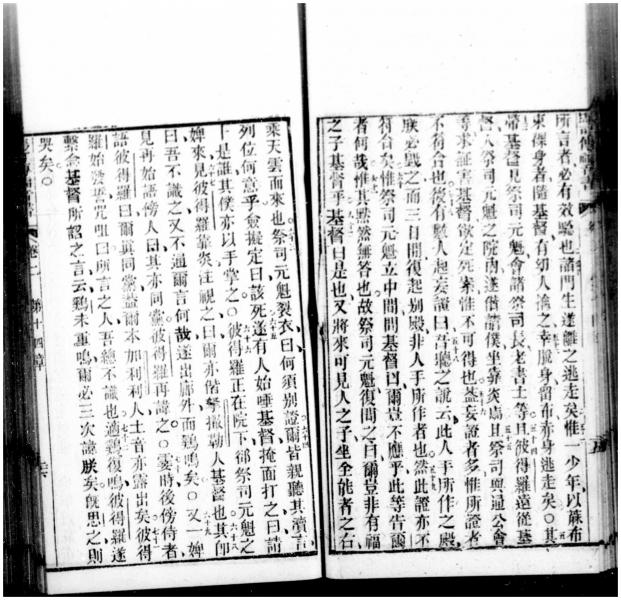 所言者必有效驗也諸門生遂離之逃走矣惟一少年以蔴布
束倮身者隨基督有幼人擒之幸脫身留布赤身逃走矣○其
帶基督見祭司元魁會諸祭司長老書士等且彼得羅遠從基
督入祭司元魁之院內遂偕諸僕坐靠炎焉且祭司與通公會
等求証害基督欲定死案惟不可得也蓋妄證者多惟所證者
不符合也後有數人起妄證曰吾聽之說云此人手所作之殿
朕必毀之而三日間復起別殿非人手所作者也然此證亦不
符合矣惟祭司元魁立中間問基督曰爾豈不應乎此等告爾
者何哉惟其默然無答也故祭司元魁復問之曰爾豈非有福
之子基督乎基督曰是也又將來可見人之子坐全能者之右
乘天雲而來也祭司元魁裂衣曰何須別證爾皆親聽其瀆言
列位何意乎僉擬定曰該死遂有人始唾基督掩面打之曰請
卜是誰其僕亦以手掌之○彼得羅正在院下節祭司元魁之
婢來見彼得羅靠炎注視之曰爾亦偕拏撒勒人基督也其卽
曰吾不識之又不通爾言何哉遂出廊外而鶏鳴矣○又一婢
見再始語傍人曰其亦同黨彼得羅再諱之○霎時後傍侍者
語彼得羅曰爾真同黨蓋爾本加利利人土音亦露出矣彼得
羅始發誓咒詛曰所言之人吾總不識也適鶏復鳴彼得羅遂
繫念基督所諂之言云鶏未重鳴爾必三次諱朕矣旣思之則
哭矣○
卷二 第十四章